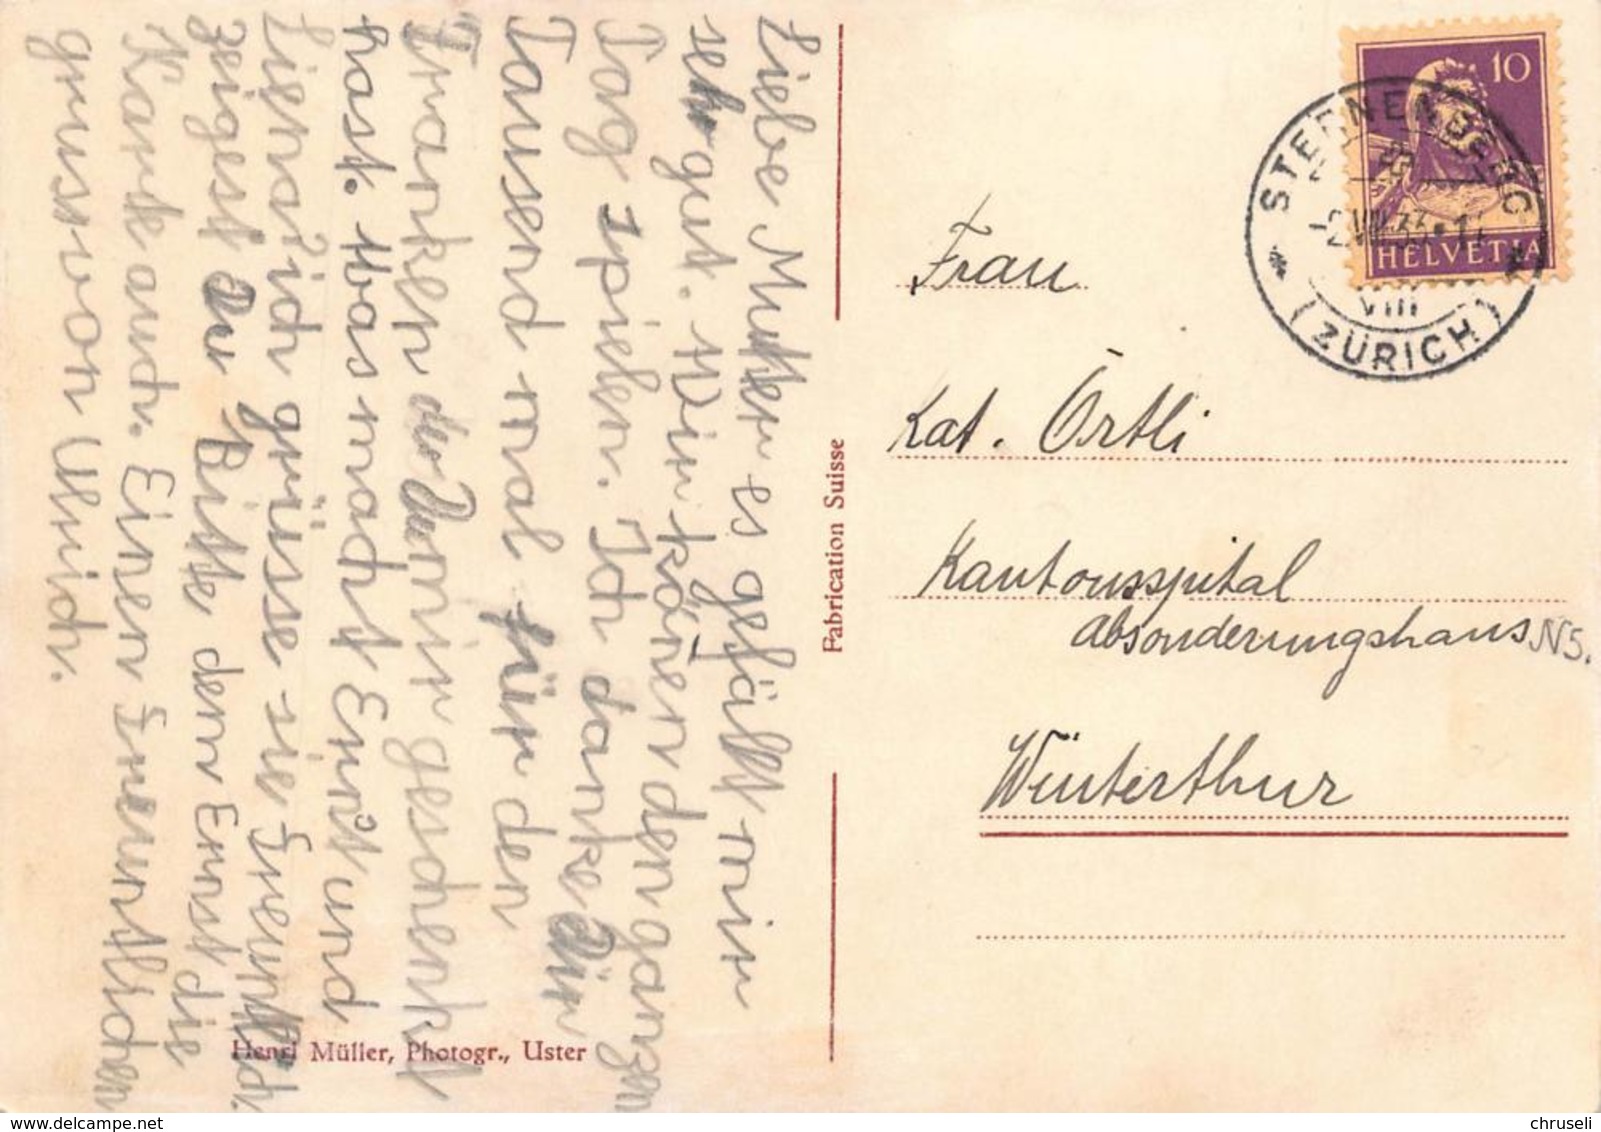 Liebe Mutter es gefällt mir
sehr gut. Wir könen den ganzen
Tag spielen. Ich danke Dir
Tausend mal für den
Franken der Du mir geschenkt
hast. Was macht Ernst und
Liena? ich grüsse sie freuntlich.
zeigest du Bitte dem Ernst die
Karte auch. Einen freuntlichen
gruss von Ulrich.
Henri Müller, Photogr., Uster
Fabrication Suisse
10
HELVETIA
STERNENBERG
VIII
(ZÜRICH)
Frau
Kat. Örtli
Kantonsspital
Absonderungshaus N5.
Winterthur
chruseli